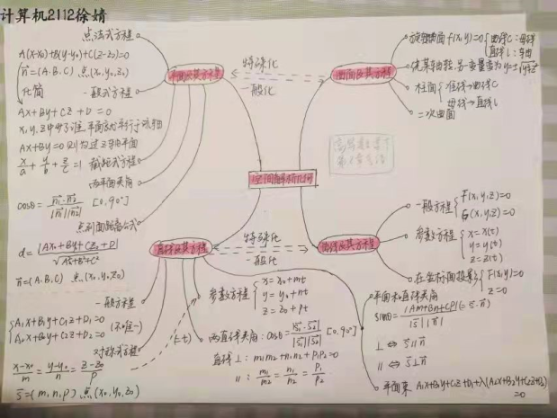 计算机2112徐婧
点法式方程
A(x-x₀)+B(y-y₀)+C(z-z₀)=0
n⃗=(A.B.C) 点(x₀,y₀,z₀)
化简
一般式方程
Ax+By+Cz+D=0
Ax+By=0
x/a+y/b+z/c=1 截距式方程
两平面夹角
cosθ=|n₁⃗·n₂⃗|/|n₁⃗||n₂⃗| [0,90°]
点到面距离公式
d=|Ax₀+By₀+Cz₀+D|/√A²+B²+C²
n⃗=(A.B.C) 点(x₀,y₀,z₀)
平面及其方程
特殊化
一般化
曲面及其方程
旋转曲面 f(x,y)=0 曲线C:母线
直线L:
柱面
准线→曲线C
母线→直线L
二次曲面
空间解析几何
直线及其方程
特殊化
一般化
曲线及其方程
一般方程 F(x,y,z)=0
G(x,y,z)=0
参数方程 x=x(t)
y=y(t)
z=z(t)
在坐标面投影 F(x,y)=0
z=0
一般方程
A₁x+B₁y+C₁z+D₁=0
A₂x+B₂y+C₂z+D₂=0
(不唯一)
对称式方程
x-x₀/m=y-y₀/n=z-z₀/p
s⃗=(m,n,p) 点(x₀,y₀,z₀)
(=t)
参数方程 x=x₀+mt
y=y₀+nt
z=z₀+pt
两直线夹角:cosθ=|s₁⃗·s₂⃗|/|s₁⃗||s₂⃗| [0,90°]
直线⊥:m₁m₂+n₁n₂+p₁p₂=0
∥:m₁/m₂=n₁/n₂=p₁/p₂
平面和直线夹角
sinθ=|Am+Bn+Cp|/|s⃗||n⃗|
⊥⇔s⃗∥n⃗
∥⇔s⃗⊥n⃗
平面束 A₁x+B₁y+C₁z+D₁+λ(A₂x+B₂y+C₂z+D₂)
=0